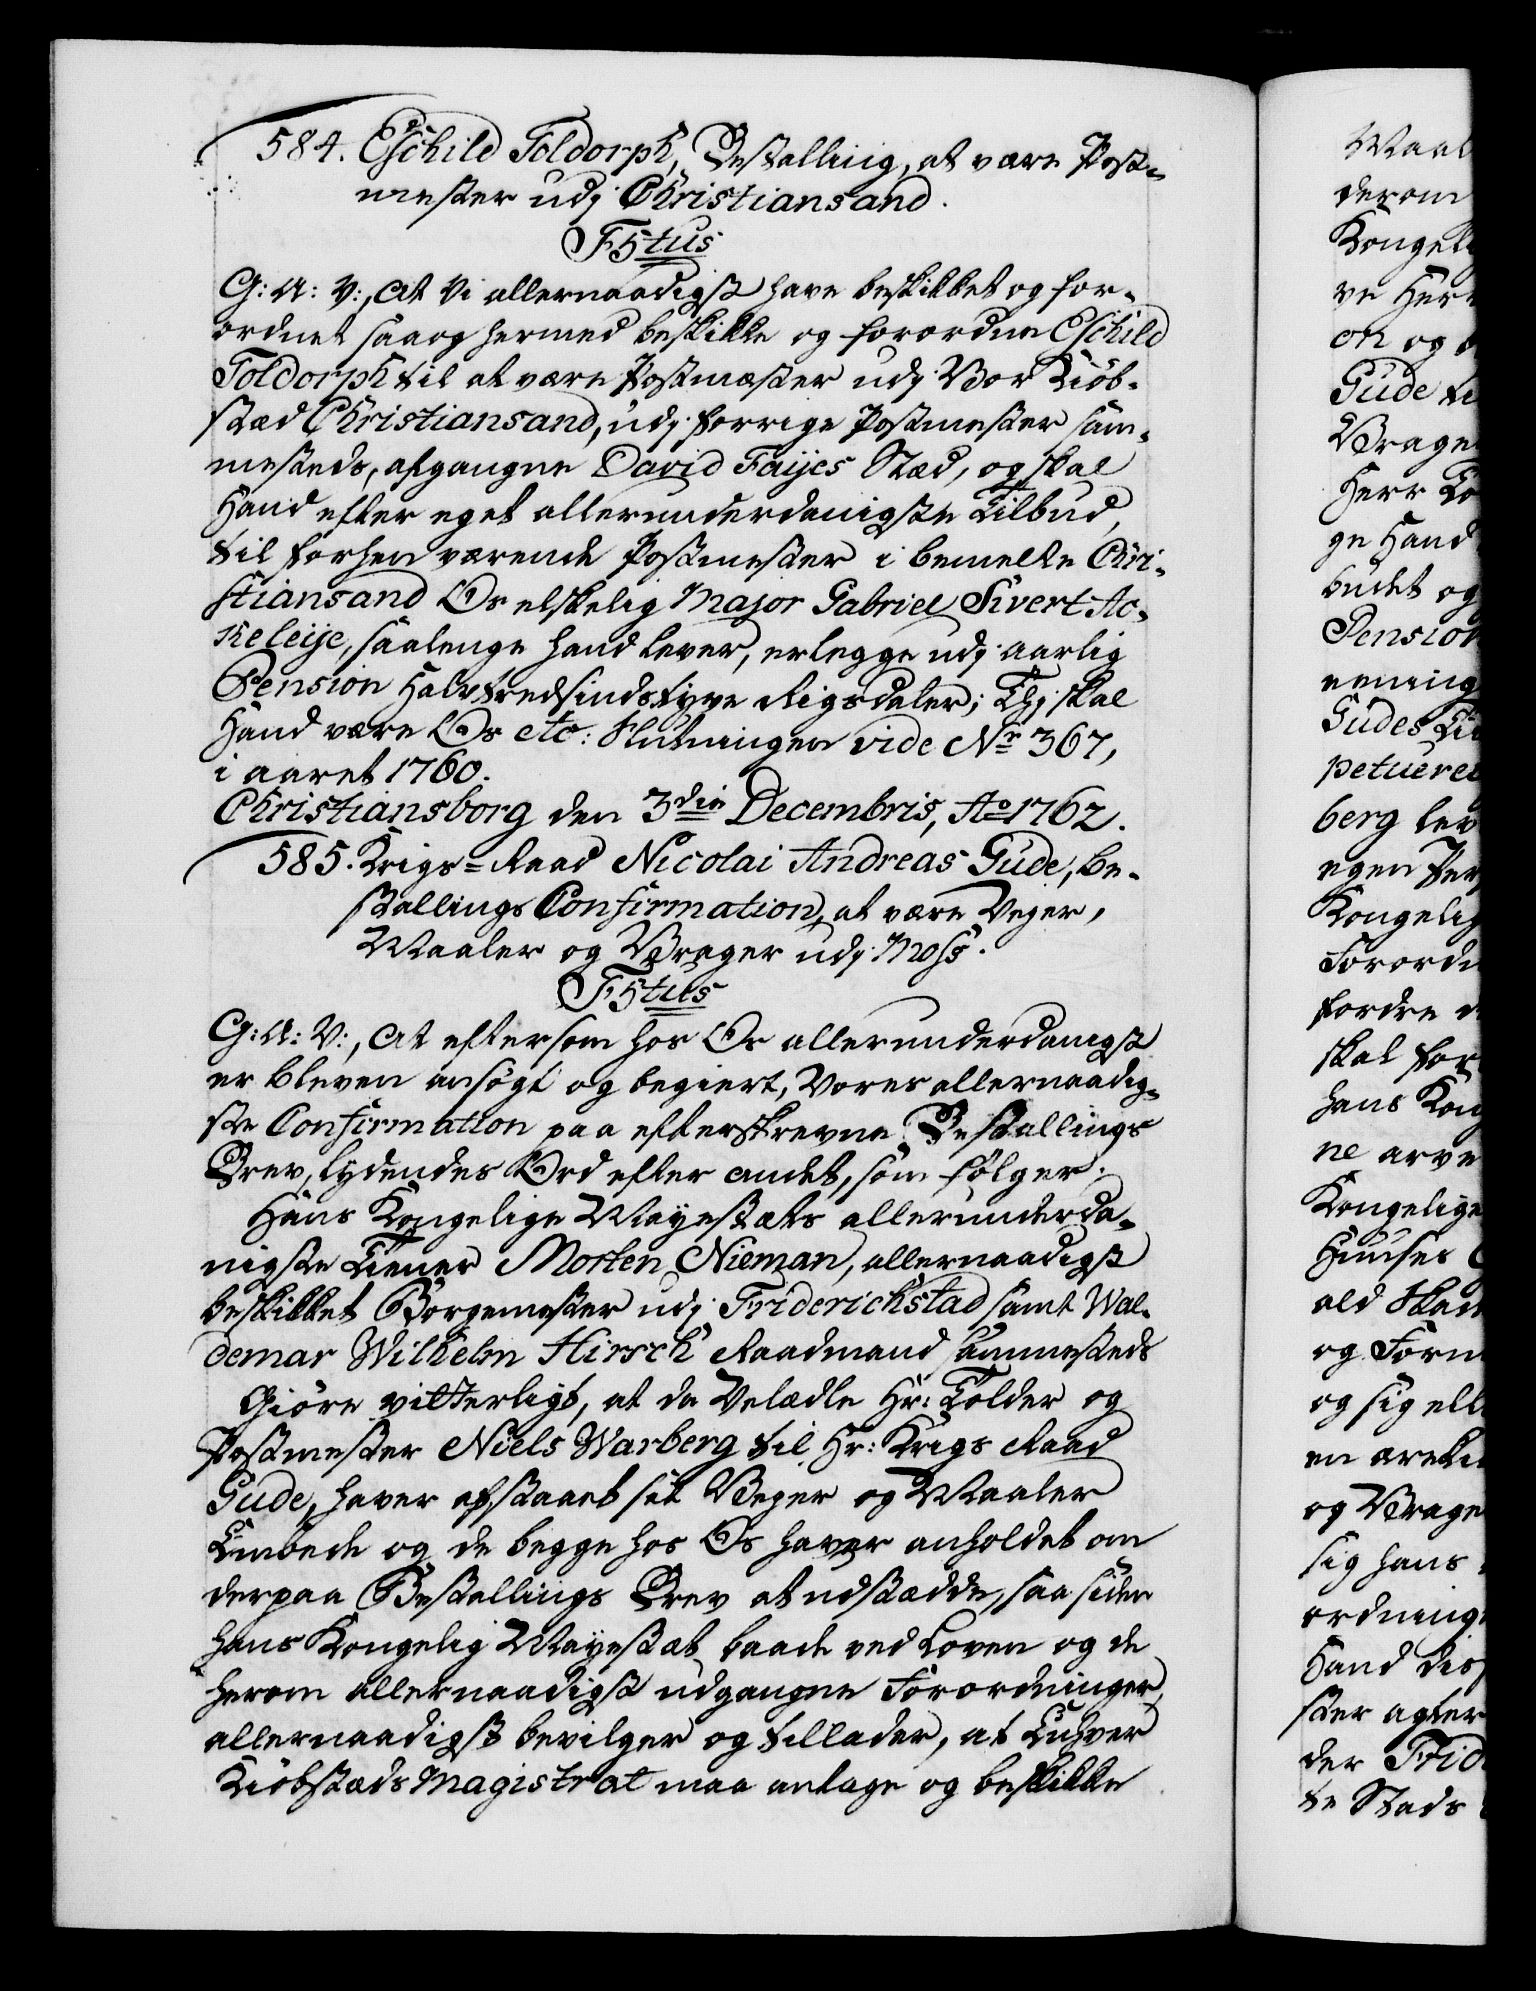 584. Eschild Toldorph, Bestalling, at være Post-
mester udj Christiansand.
F5tus
G: A: V:, at Vi allernaadigst have beskikket og for-
ordnet saa og hermed beskikke og forordne Eschild
Toldorph til at være Postmester udj Vor Kiöb-
stæd Christiansand, udj forrige Postmester sam-
mesteds, afgangne David Faijes Stæd, og skal
Hand efter eget allerunderdanigste Tilbud,
til forhen værende Postmester i bemelte Chri-
stiansand Os elskelig Major Gabriel Sivert Ac-
keleije, saalenge hand lever, erlegge udj aarlig
Pension Halvtredsindstyve Rigsdaler; Thj skal
Hand være Os etc: Slutningen vide No 367,
i aaret 1760.
Christiansborg den 3die Decembris, Ao 1762.
585. Krigs-Raad Nicolai Andreas Gude, Be-
stallings Confirmation, at være Vejer,
Maaler og Vrager udj Moss.
F5tus
G: A: V:, at eftersom hos Os allerunderdanigst
er bleven ansögt og begiert, Vores allernaadig-
ste Confirmation paa efterskrevne Bestallings
Brev, lydendes Ord efter andet, som følger.
Hans Kongelige Mayestæts allerunderda-
nigste Tiener Morten Nieman, allernaadigst
beskikket Borgemester udj Friderichstad samt Wal-
demar Wilhelm Hirsch Raadmand sammesteds
Giöre vitterligt, at da Velædle Hr: Tolder og
Postmester Niels Warberg til Hr: Krigs Raad
Gude, haver afstaaet sit Vejer og Maaler
Embede og de begge hos Os haver anholdet om
derpaa Bestallings Brev at udstædde, saa siden
hans Kongelig Mayestæt baade ved Loven og de
herom allernaadigst udgangne Forordninger,
allernaadigst bevilger og tillader, at Enhver
Kiöbstæds Magistrat maa antage og beskikke
Maal
derom
Kongel
ve Her
on og
Gude ti
Vrage
Herr To
ge Hand
budet og
Pension
nening
Gudes Ti
petuere
berg lev
egen Per
Kongelig
Forordn
fordre
skal for
hans Kon
ne arve
Kongelige
Huuses
ald Skad
og Form
og sig ell
en
og Vrage
sig hans
ordning
Hand dis
ster agter
der Frid
te Stads